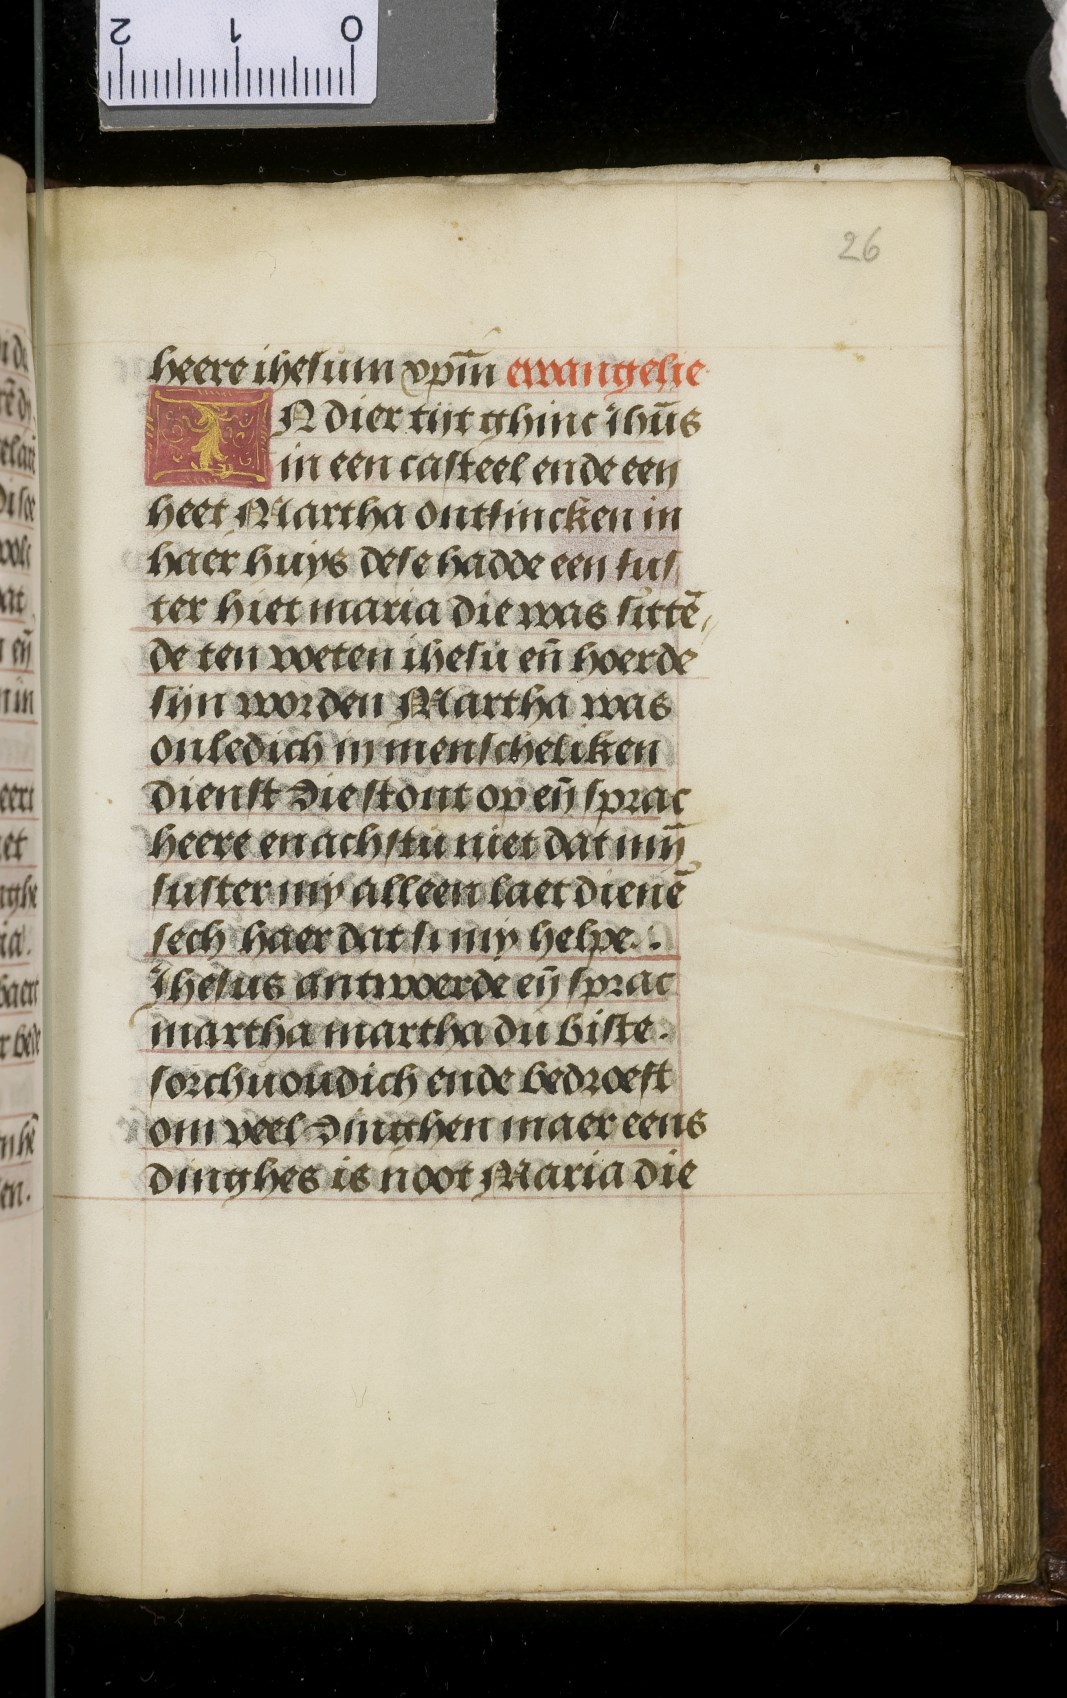 26
heere ihesum xpm̄ ewangelie
IN dier tijt ghinc ihūs
in een casteel ende een
heet Martha ontfincken in
haer huys dese hadde een sus
ter hiet maria die was sittē
de ten voeten ihesu en̄ hoerde
sijn worden Martha was
onledich in menscheliken
dienst Die stont op en̄ sprac
heere en achstu niet dat mȳ
suster my alleen laet dienē
sech haer dat si my helpe.
Ihesus antwoerde en̄ sprac
martha martha du biste.
sorchuoudich ende bedroeft
om veel Dinghen maer eens
dinghes is noot Maria die
0 1 2